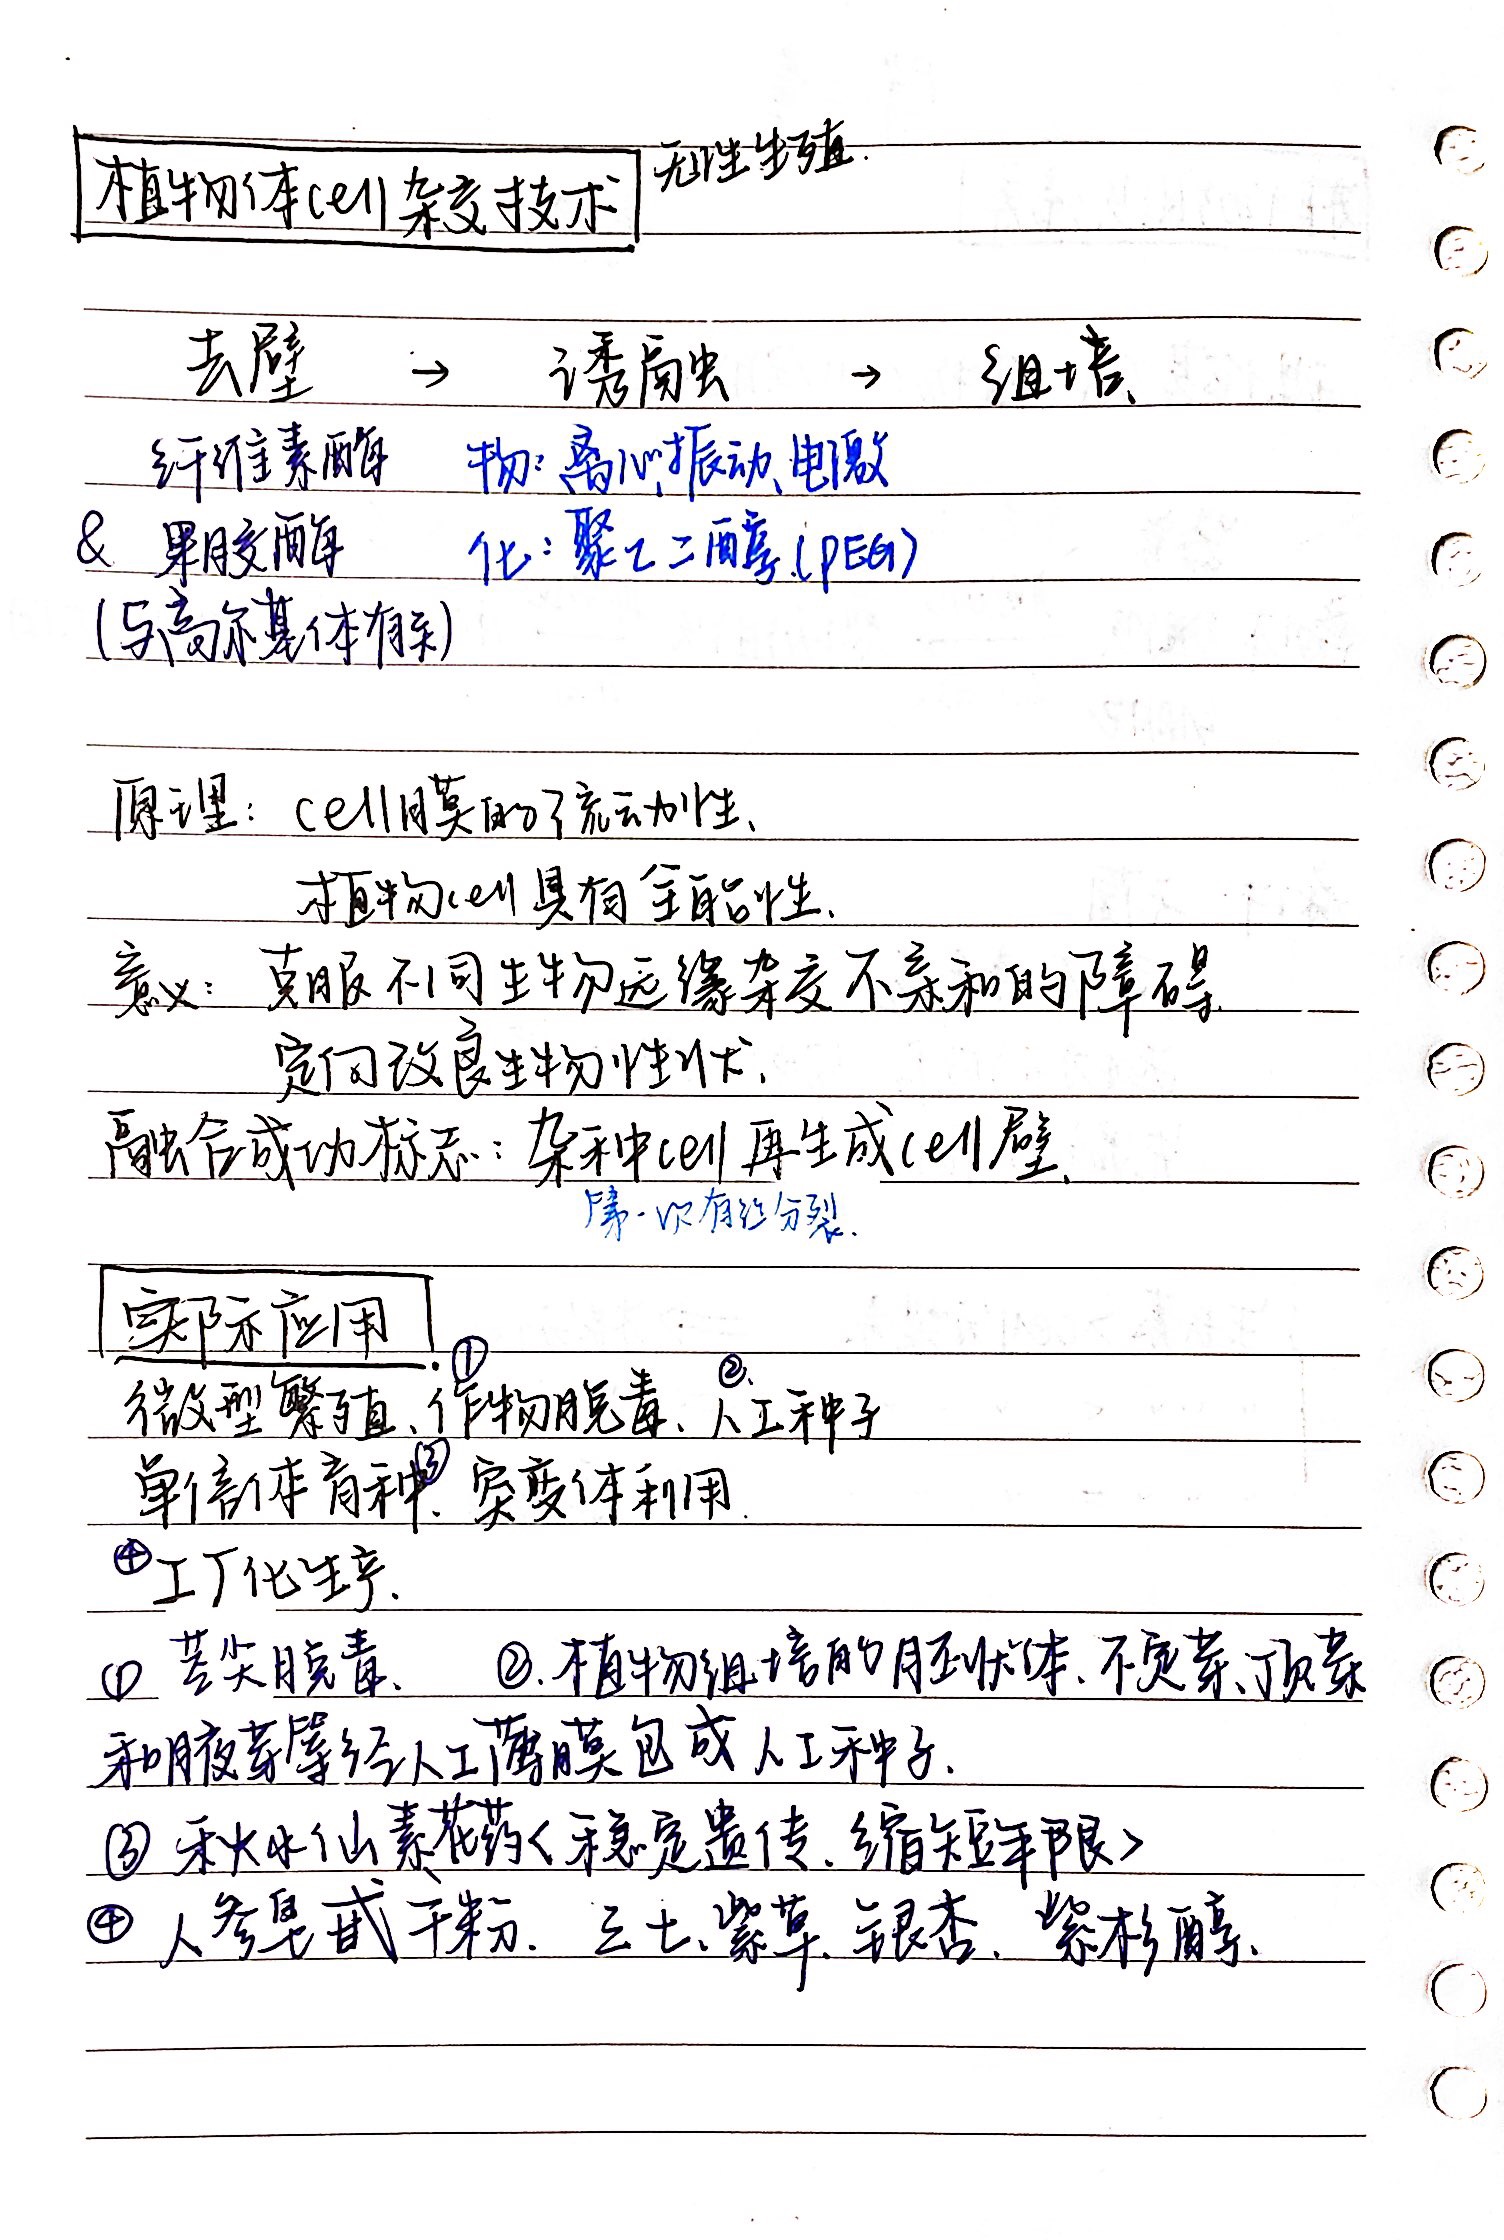 植物体cell杂交技术 无性生殖.
去壁 → 诱融 → 组培、
纤维素酶 物:离心、振动、电激
& 果胶酶 化:聚乙二醇.(PEG)
(与高尔基体有关)
原理: cell膜的流动性、
植物cell具有全能性、
意义: 克服不同生物远缘杂交不亲和的障碍
定向改良生物性状.
融合成功标志:杂种cell再生成cell壁、
第一次有丝分裂.
实际应用
微型繁殖、①作物脱毒、②人工种子
单倍体育种③、突变体利用.
④工厂化生产.
① 茎尖脱毒、 ②.植物组培的胚状体、不定芽、顶芽
和腋芽等经人工薄膜包成人工种子.
③ 秋水仙素、花药<稳定遗传、缩短年限>
④ 人参皂甙干粉. 三七、紫草、银杏、紫杉醇、